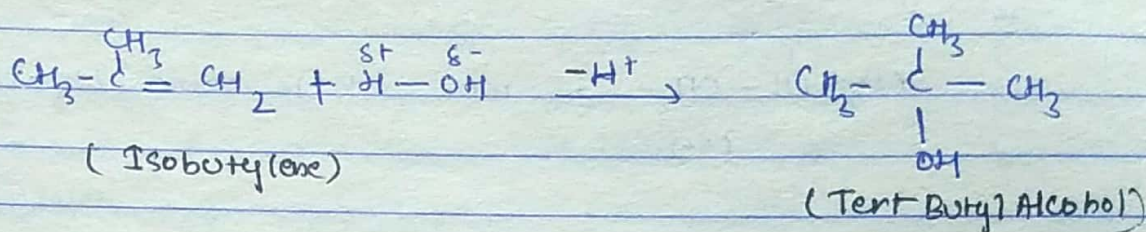 CH3 CH3
CH3 - C = CH2 + H δ+ — OH δ- -H+ → CH3 - C — CH3
|
OH
( Isobutylene)
(Tert Butyl Alcohol)